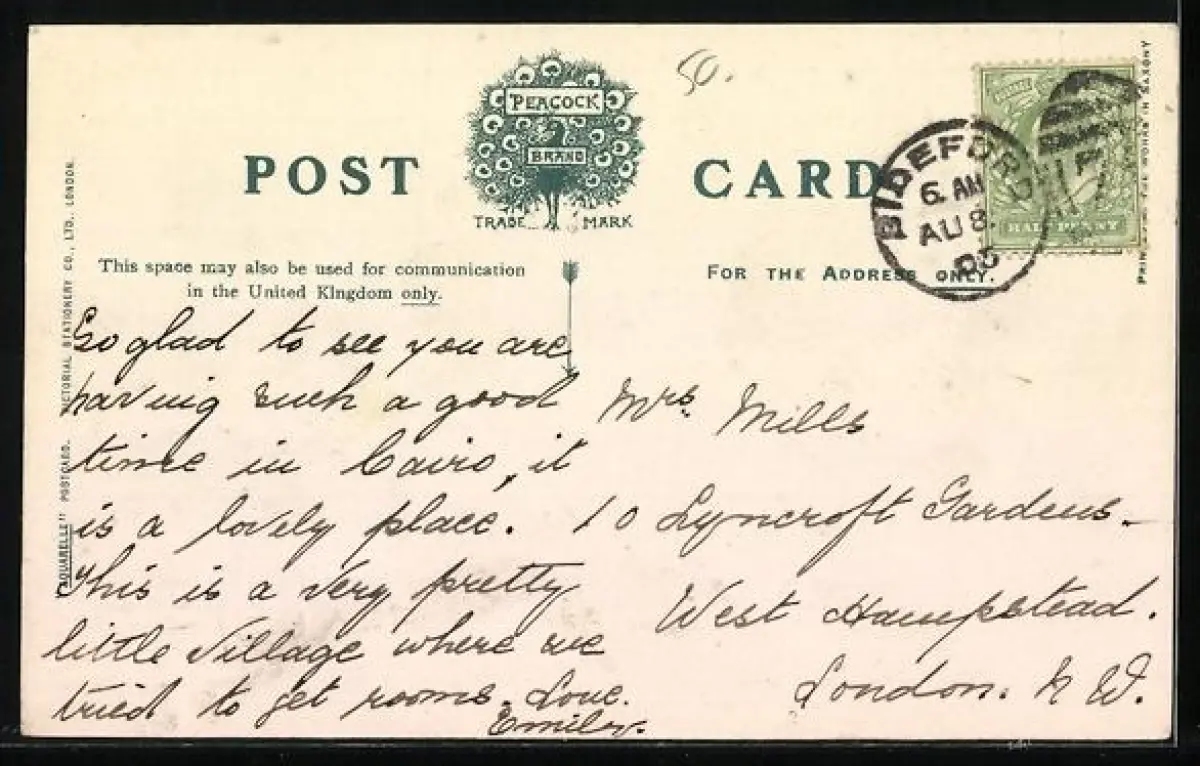 50.
PEACOCK
BRAND
TRADE MARK
POST CARD
BIDEFORD
6. AM
AU 8
05
HALF PENNY
This space may also be used for communication
in the United Kingdom only.
FOR THE ADDRESS ONLY.
So glad to see you are
having such a good
time in Cairo, it
is a lovely place.
This is a very pretty
little village where we
tried to get rooms. Love.
Emily.
Mrs. Mills
10 Lyncroft Gardens.
West Hampstead.
London. N W.
"AQUARELLE" POSTCARD. PICTORIAL STATIONERY CO., LTD., LONDON.
THE WORKS IN SAXONY